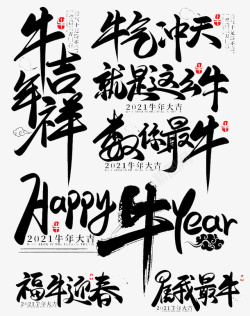 牛年吉祥
牛气冲天
就是这么牛
2021牛年大吉
数你最牛
Happy 牛 Year
2021牛年大吉
福牛迎春
2021牛年大吉
属我最牛
2021牛年大吉